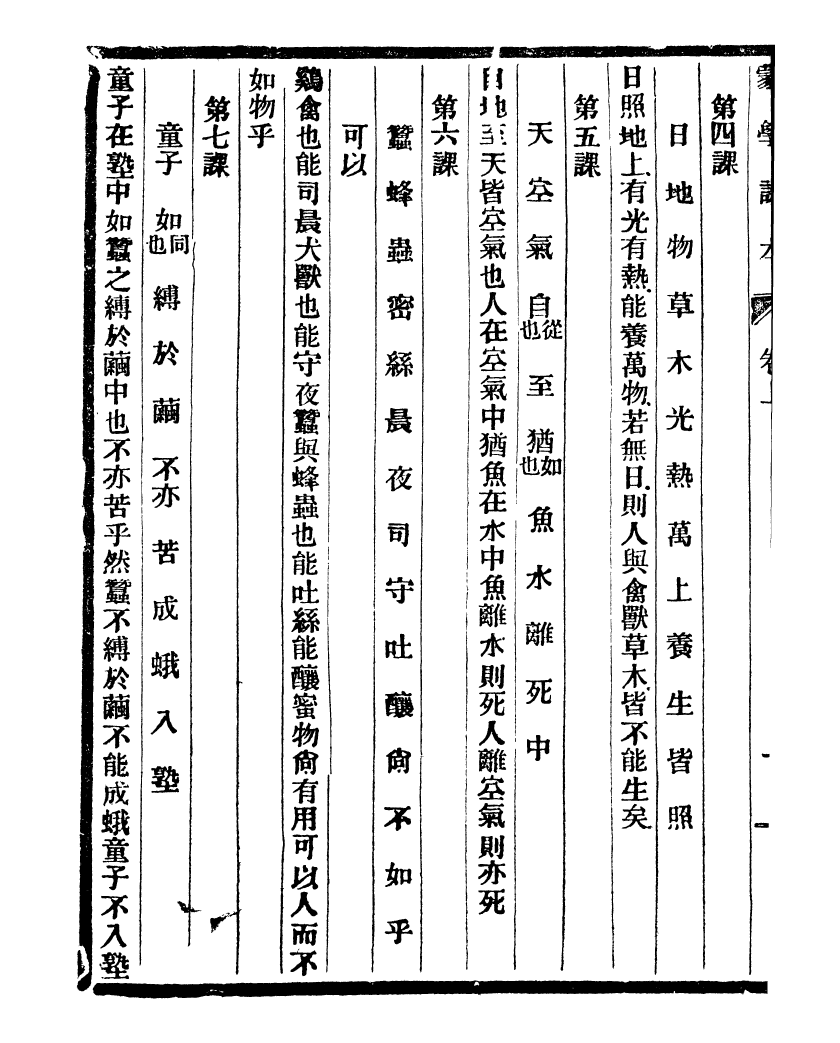 蒙學課本 卷一
第四課
日地物草木光熱萬上養生皆照
日照地上有光有熱能養萬物若無日則人與禽獸草木皆不能生矣
第五課
天空氣自從也至猶如也魚水離死中
自地至天皆空氣也人在空氣中猶魚在水中魚離水則死人離空氣則亦死
第六課
蠶蜂蟲密絲晨夜司守吐釀尙不如乎
可以
鷄禽也能司晨犬獸也能守夜蠶與蜂蟲也能吐絲能釀蜜物尙有用可以人而不
如物乎
第七課
童子如同也縛於繭不亦苦成蛾入塾
童子在塾中如蠶之縛於繭中也不亦苦乎然蠶不縛於繭不能成蛾童子不入塾